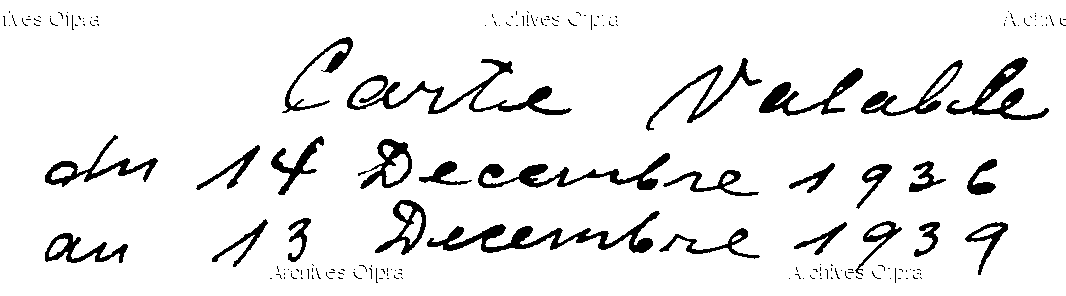 Archives Ofpra Archives Ofpra Archive
Carte Valable
du 14 Decembre 1936
au 13 Decembre 1939
Archives Ofpra Archives Ofpra